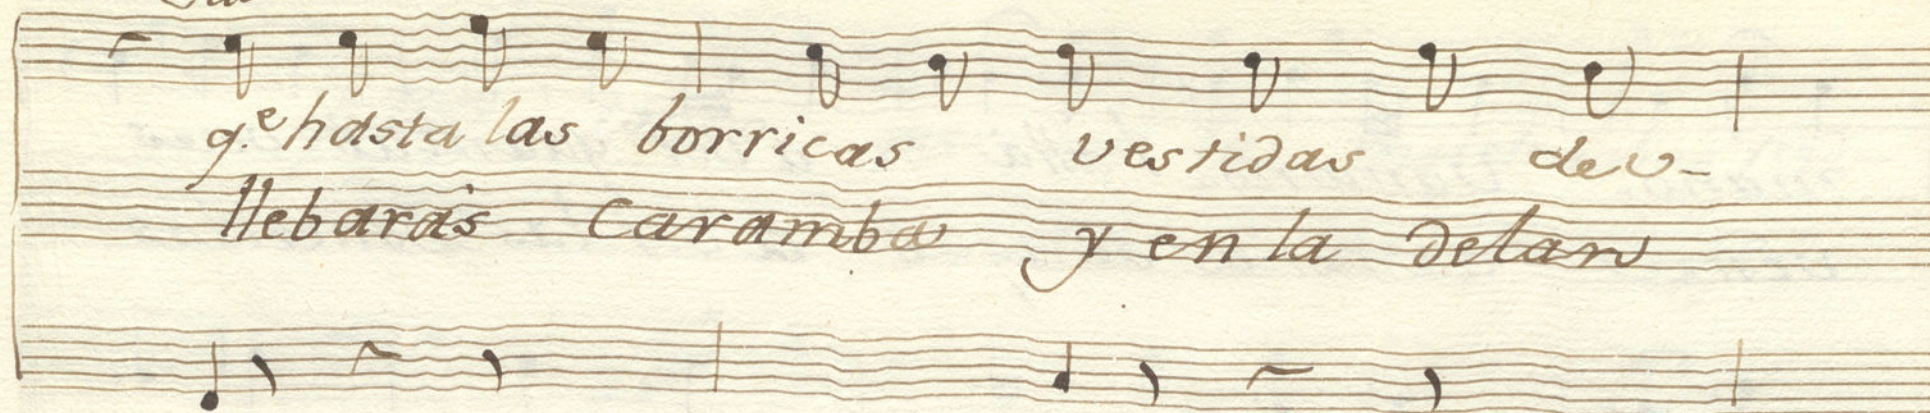 q.e hasta las borricas vestidas de v-
llebarás Caramba y en la delan